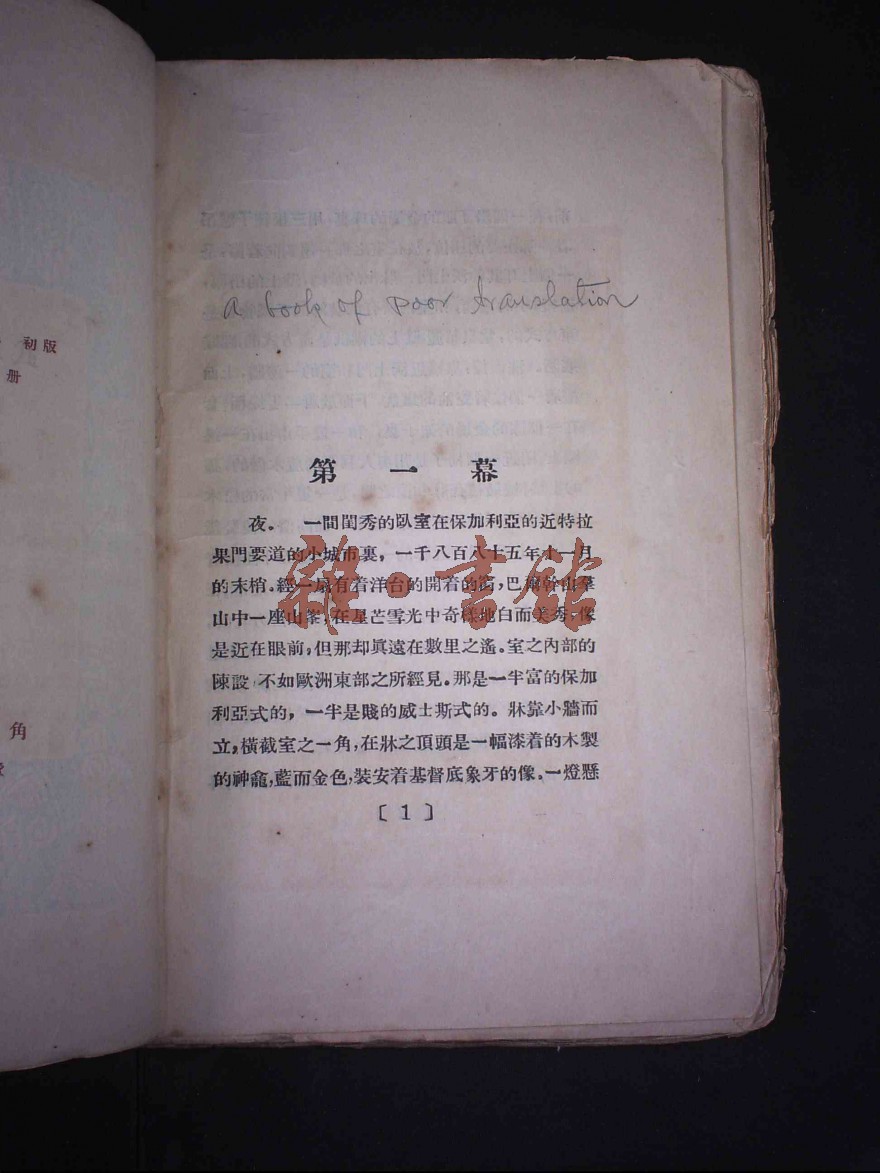 初版
册
角
a book of poor translation
第一幕
夜。 一間閨秀的臥室在保加利亞的近特拉
果門要道的小城市裏，一千八百八十五年十一月
的末梢。經一扇有着洋台的開着的窗，巴爾幹山羣
山中一座山峯，在星芒雪光中奇樣地白而美秀，像
是近在眼前，但那却眞遠在數里之遙。室之內部的
陳設，不如歐洲東部之所經見。那是一半富的保加
利亞式的，一半是賤的威士斯式的。牀靠小牆而
立，橫截室之一角，在牀之頂頭是一幅漆着的木製
的神龕，藍而金色，裝安着基督底象牙的像。一燈懸
〔1〕
雜·書館